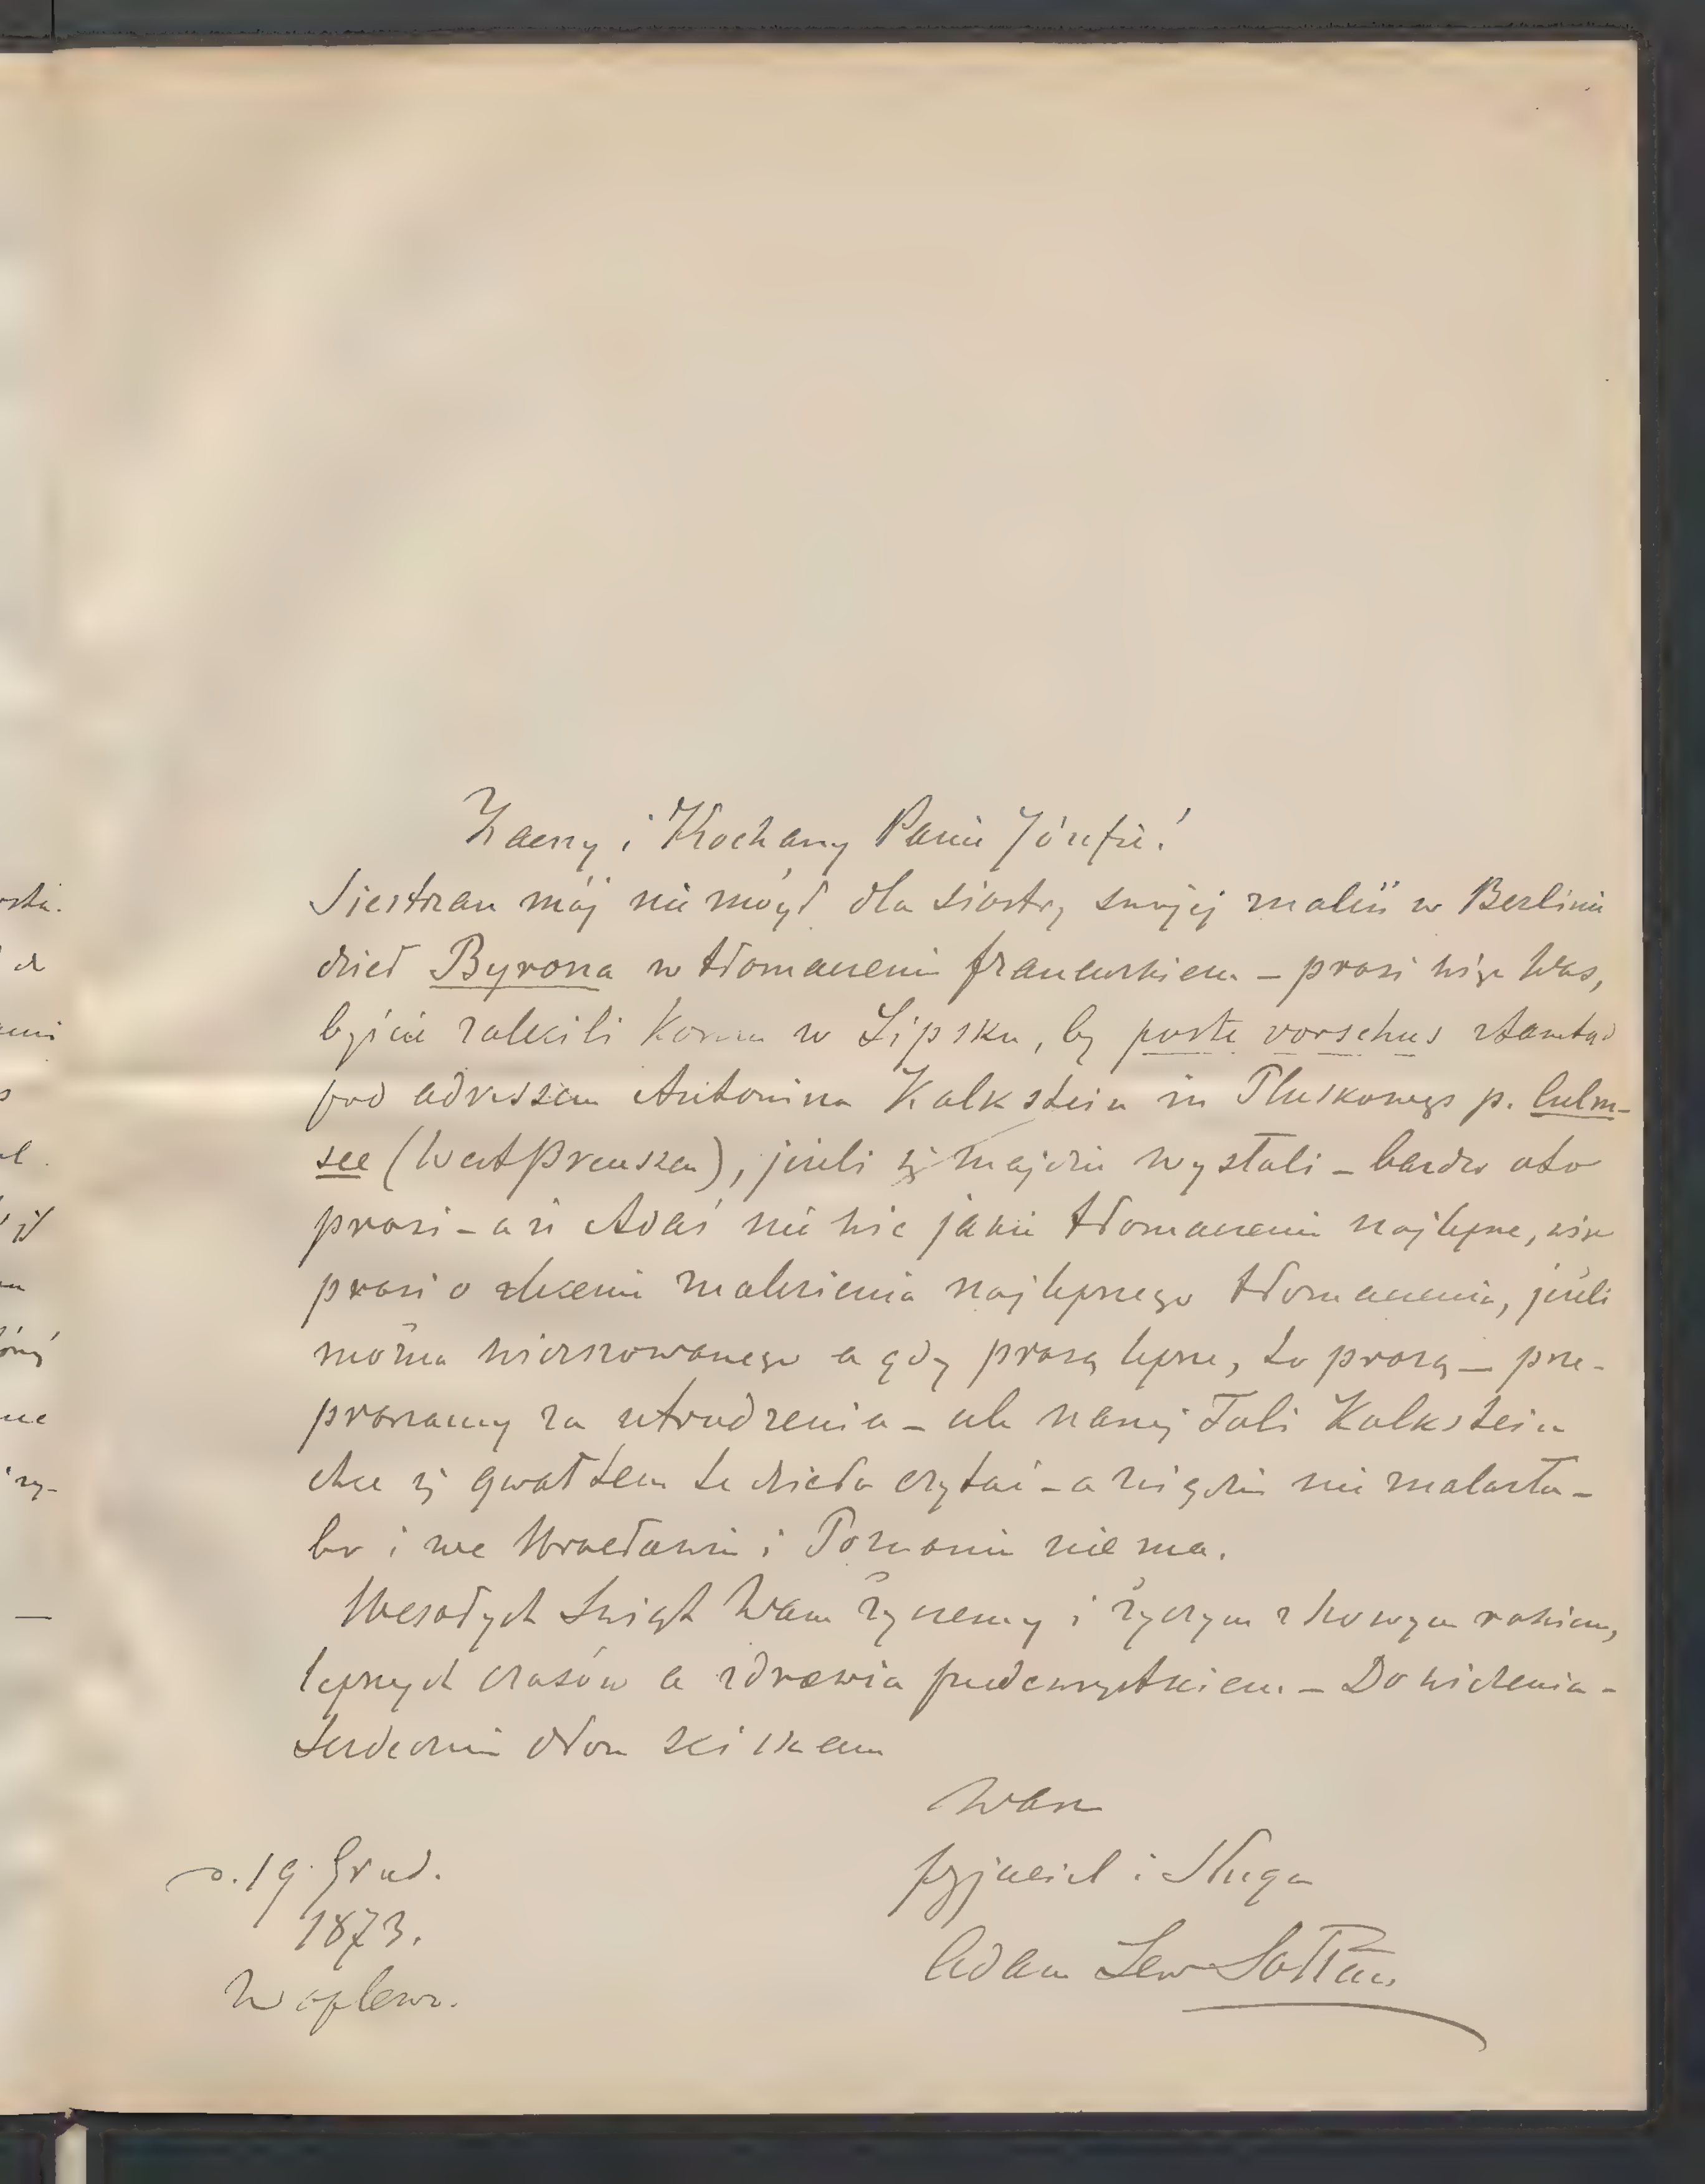 Zacny i Kochany Panie Józefie!
Siestrzan mój nie mógł dla siostry swojej znaleść w Berlinie
dzieł Byrona w tłomaczeniu francuzkiem – prosi więc Was,
byście zalecili komu w Lipsku, by poste vorschus ztamtąd
pod adressem Antonina Kalkstein in Pluskowęs p. Culm-
see (WestPreuszen), jeżeli się znajdzie wysłali – bardzo oto
prosi – a że Adaś nie wie jakie tłomaczenie najlepsze, więc
prosi o zlecenie znalezienia najlepszego tłomaczenia, jeżeli
można wierszowanego a gdy prozą lepsze, to prozą – prze-
praszamy za utrudzenia – ale naszej Toli Kalkstein
chce się gwałtem te dzieła czytać – a nigdzie nie znalazła –
bo i we Wrocławiu i Poznaniu nie ma.
Wesołych Świąt Wam życzemy i życzym z Nowym rokiem,
lepszych czasów a zdrowia przedewszystkiem. – Do widzenia –
Serdecznie dłoń ściskam
Wasz
przyjaciel i Sługa
Adam Lew Sołtan
d. 19. Grud.
1873.
Waplewo.